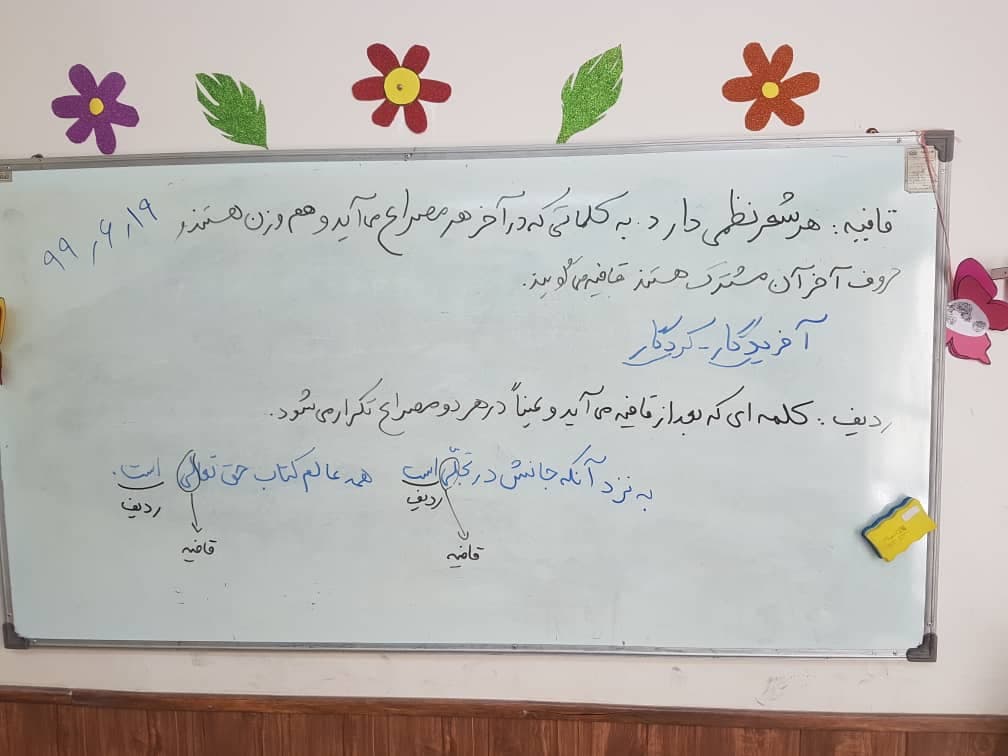 قافیه : هر شعر نظمی دارد. به کلماتی که در آخر هر مصراع می آید و هم وزن هستند و ۹۹٫۶٫۱۹
حروف آخر آن مشترک هستند قافیه می گویند.
آفریدگار - کردگار
ردیف : کلمه ای که بعد از قافیه می آید و عیناً در هر دو مصراع تکرار می شود.
به نزد آنکه جانش در تجلّی است همه عالم کتاب حق تعالی است.
ردیف ردیف
قافیه قافیه